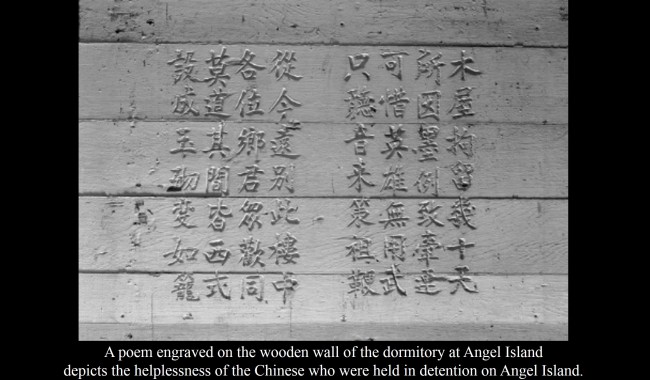 木屋拘留幾十天
所囚墨例致牽連
可惜英雄無用武
只聽音來策祖鞭
從今遠別此樓中
各位鄉君眾歡同
莫道其間皆西式
設成玉砌變如籠
A poem engraved on the wooden wall of the dormitory at Angel Island
depicts the helplessness of the Chinese who were held in detention on Angel Island.